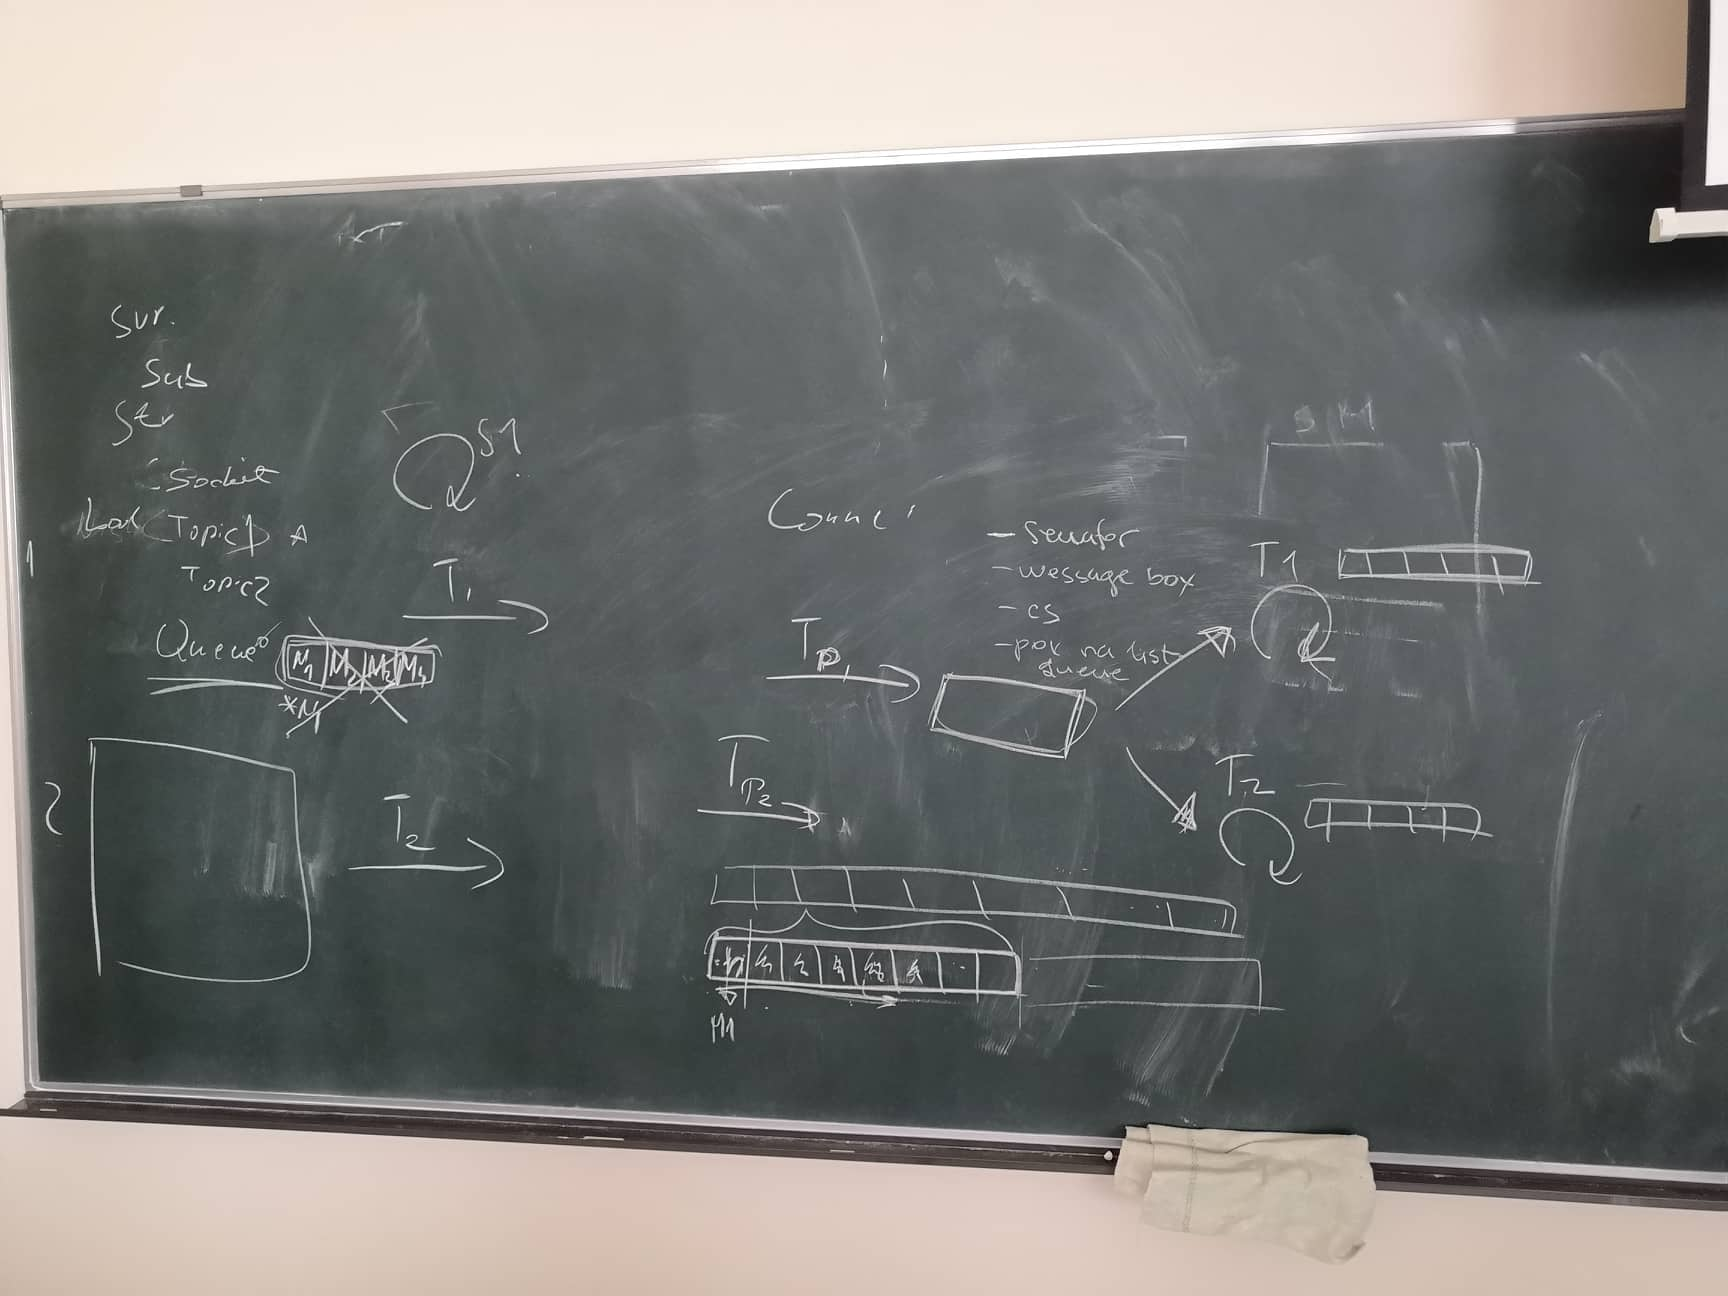 Sur.
Sub
Str
Socket
(Topic1) A
Topic2
Queue
M1 M2 M3
*M1
S1
T1
2
T2
Conne
- semafor
- message box
- cs
- pok na list
queue
TP1
TP2
T1
T2
M1